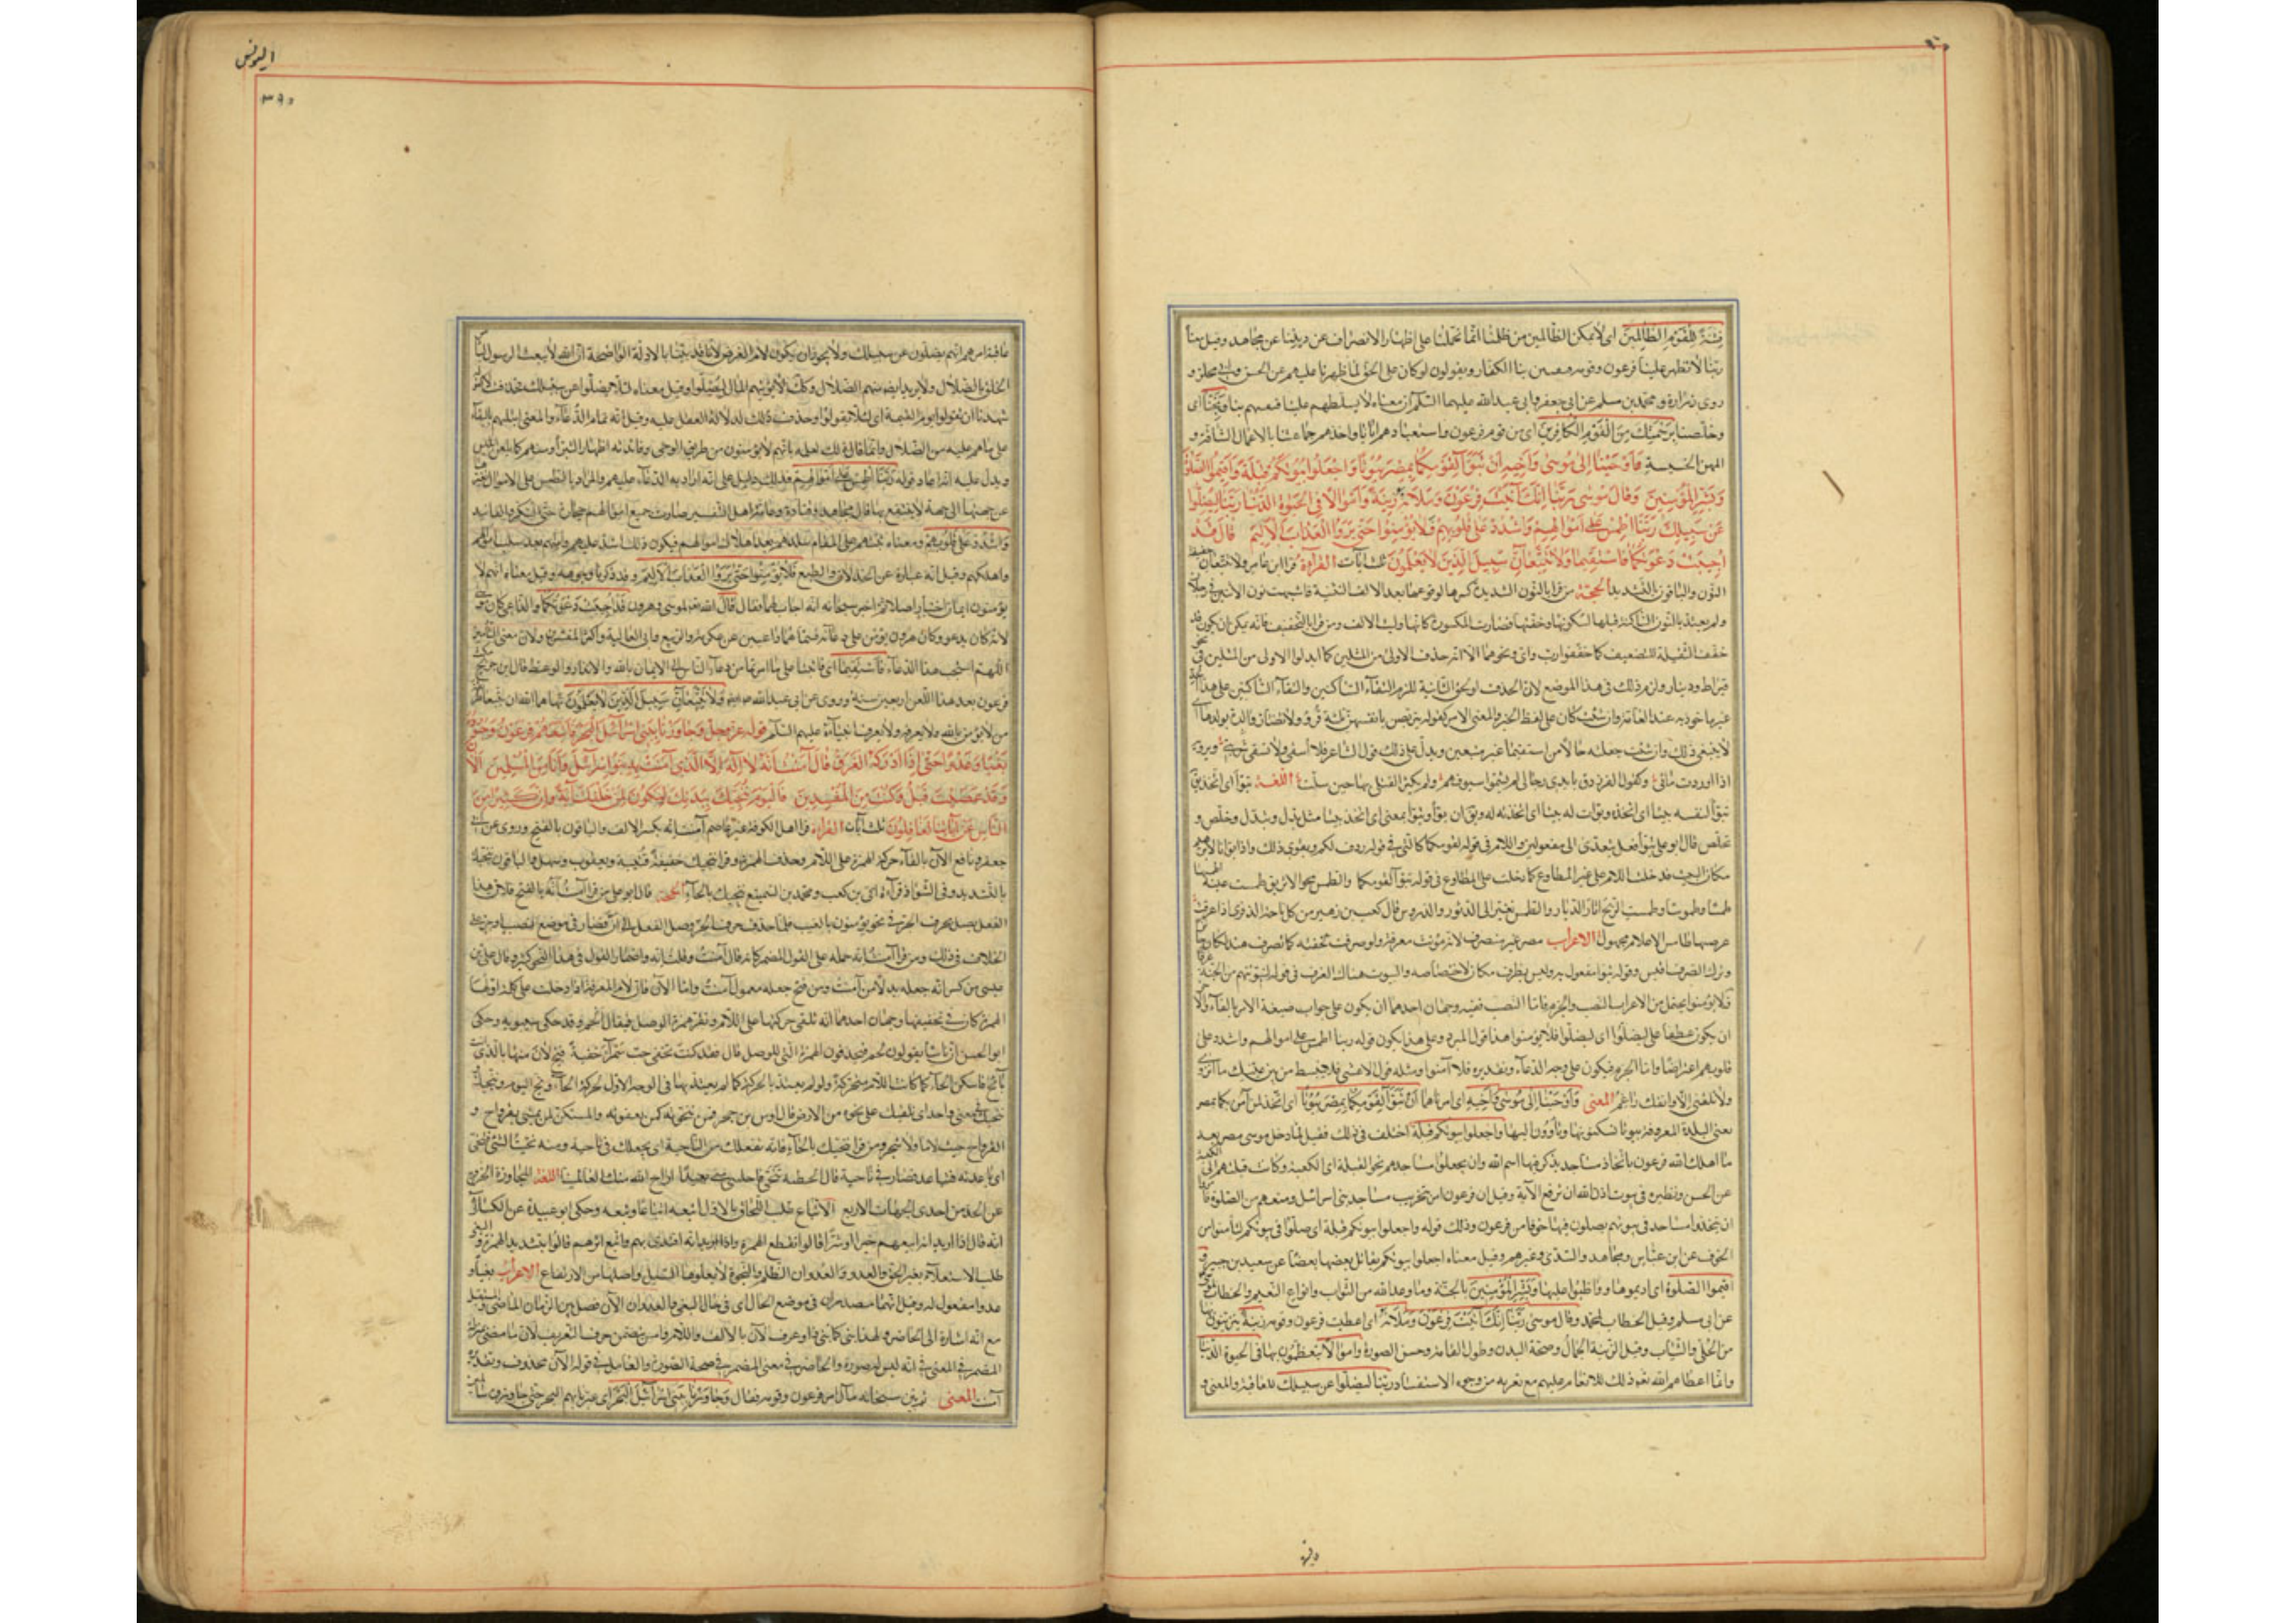 فتنة للقوم الظالمين اى لا تمكن الظالمين من ظلمنا بما تحملنا على اظهار الانصراف عن ديننا عن مجاهد وقيل معناه
ربنا لا تظهر علينا فرعون وقومه فيفتتن بنا الكفار ويقولون لو كان على الحق لما ظهرنا عليهم عن الحسن وابى مجلز و
روى زرارة ومحمد بن مسلم عن ابى جعفر وابى عبد الله عليهما السلام ان معناه لا تسلطهم علينا فتفتنهم بنا ونجنا اى
وخلصنا برحمتك من القوم الكافرين اى من قوم فرعون واستعبادهم ايانا واخذهم جماعتنا بالاعمال الشاقة و
المهن الخسيسة وَاَوْحَيْنا اِلى مُوسى وَاَخيهِ اَنْ تَبَوَّآ لِقَوْمِكُما بِمِصْرَ بُيُوتًا وَاجْعَلُوا بُيُوتَكُمْ قِبْلَةً وَاَقيمُوا الصَّلوةَ
وَبَشِّرِ الْمُؤْمِنينَ وَقالَ مُوسى رَبَّنا اِنَّكَ آتَيْتَ فِرْعَوْنَ وَمَلَاَهُ زينَةً وَاَمْوالًا فِى الْحَيوةِ الدُّنْيا رَبَّنا لِيُضِلُّوا
عَنْ سَبيلِكَ رَبَّنَا اطْمِسْ عَلى اَمْوالِهِمْ وَاشْدُدْ عَلى قُلُوبِهِمْ فَلا يُؤْمِنُوا حَتّى يَرَوُا الْعَذابَ الْاَليمَ قالَ قَدْ
اُجيبَتْ دَعْوَتُكُما فَاسْتَقيما وَلا تَتَّبِعانِّ سَبيلَ الَّذينَ لا يَعْلَمُونَ ثلث آيات القراءة قرا ابن عامر ولا تتبعان خفيفة
النون والباقون بالتشديد الحجة من قرا بالنون الشديدة كسرها لوقوعها بعد الالف التثنية فاشبهت نون الاثنين فى رجلان
ولم يعتد بالنون الساكنة قبلها لسكونها وخفتها فصارت المكسورة كانها وليت الالف ومن قرا بالتخفيف فانه يمكن ان يكون قد
خفف الثقيلة للتضعيف كما خففوا رب وان ونحوهما الا انه حذف الاولى من المثلين كما ابدلوا الاولى من المثلين فى نحو
قيراط ودينار ولزم ذلك فى هذا الموضع لان الحذف لو لحق الثانية للزم التقاء الساكنين والتقاء الساكنين على هذا الحد
غير ماخوذ به عند العامة وان شئت كان على لفظ الخبر والمعنى الامر كقوله يتربصن بانفسهن ثلثة قروء ولا تضار والدة بولدها اى
لا ينبغى ذلك وان شئت جعلته حالا من استقيما غير متبعين ويدل على ذلك قول الشاعر فلا اسقى ولا تسقى
اذا اوردت مائى وكقول الفرزدق بايدى رجال لم يشيموا سيوفهم ولم يكثر القتلى بها حين سلت اللغة تبوأ اى اتخذ يقال
تبوأ لنفسه بيتا اى اتخذه وبوات له بيتا اى اتخذته له
تخلص قال ابو على تبوأ فعل يتعدى الى مفعولين واللام فى قوله لقومكما كالتى فى قوله ردف لكم ويقوى ذلك واذ بوانا لابرهيم
مكان البيت فدخلت اللام على غير المطاوع كما دخلت على المطاوع فى قوله تبوآ لقومكما والطمس محو الاثر يق طمست عينه اطمسها
طمسا وطموسا وطمست الريح اثار الديار والطمس تغير الى الدثور والدروس قال كعب بن زهير من كل نضاحة الذفرى اذا عرقت
عرضتها طامس الاعلام مجهول الاعراب مصر غير منصرف لانه مؤنث معرفة ولو صرفت لخفته كما تصرف هند لكان جائزا
وترك الصرف اقيس وقوله تبوآ مفعول به وليس بظرف مكان لاختصاصه والبيوت هنا كالغرف فى قوله لنبوئنهم من الجنة غرفا
فلا يؤمنوا يحتمل من الاعراب النصب والجزم فاما النصب ففيه وجهان احدهما ان يكون على جواب صيغة الامر بالفاء والآخر
ان يكون عطفا على ليضلوا اى ليضلوا فلا يؤمنوا هذا قول المبرد وعلى هذا يكون قوله ربنا اطمس على اموالهم واشدد على
قلوبهم اعتراضا واما الجزم فيكون على وجه الدعاء وتقديره فلا آمنوا ومثله قول الاعشى فلا ينبسط من بين عينيك ما انزوى
ولا تلقنى الا وانفك راغم المعنى وَاَوْحَيْنا اِلى مُوسى وَاَخيهِ اى امرناهما اَنْ تَبَوَّآ لِقَوْمِكُما بِمِصْرَ بُيُوتًا اى اتخذا لمن آمن بكما بمصر
يعنى البلدة المعروفة بيوتا تسكنونها وتأوون اليها واجعلوا بيوتكم قبلة اختلف فى ذلك فقيل لما دخل موسى مصر بعد
ما اهلك الله فرعون باتخاذ مساجد يذكر فيها اسم الله وان يجعلوا مساجدهم نحو القبلة اى الكعبة وكانت قبلتهم الى الكعبة
عن الحسن ونظيره فى بيوت اذن الله ان ترفع الآية وقيل ان فرعون امر بتخريب مساجد بنى اسرائيل ومنعهم من الصلوة فامروا
ان يتخذوا مساجد فى بيوتهم يصلون فيها خوفا من فرعون وذلك قوله واجعلوا بيوتكم قبلة اى صلوا فى بيوتكم لتأمنوا من
الخوف عن ابن عباس ومجاهد والسدى وغيرهم وقيل معناه اجعلوا بيوتكم يقابل بعضها بعضا عن سعيد بن جبير و
اقيموا الصلوة اى اديموها وواظبوا عليها وبشر المؤمنين بالجنة وما وعد الله من الثواب وانواع النعيم والخطاب لموسى
عن ابى مسلم وقيل الخطاب لمحمد وقال موسى ربنا انك آتيت فرعون وملاه اى اعطيت فرعون وقومه زينة يتزينون بها
من الحلى والثياب وقيل الزينة الجمال وصحة البدن وطول القامة وحسن الصورة واموالا يتعظمون بها فى الحيوة الدنيا
وانما اعطاهم الله تعالى ذلك للانعام عليهم مع تعريه من وجوه الاستفساد ربنا ليضلوا عن سبيلك للعاقبة والمعنى و
دلية
اليونس
٣٩٥
عاقبة امرهم انهم يضلون عن سبيلك ولا يجوز ان يكون لام الغرض لانا قد بينا بالادلة الواضحة ان الله لا يبعث الرسول ليامر
الخلق بالضلال ولا يريد ايضا منهم الضلال وكذلك لا يؤتيهم المال ليضلوا وقيل معناه لئلا يضلوا عن سبيلك فحذف لا كقوله
شهدنا ان تقولوا يوم القيمة اى لئلا تقولوا وحذف ذلك لدلالة العقل عليه وقيل انه لام الدعاء والمعنى ابتلهم بالبقاء
على ما هم عليه من الضلال وانما قال ذلك لعلمه بانهم لا يؤمنون من طريق الوحى وفائدته اظهار التبرى منهم كما يلعن ابليس
ويدل عليه انه اعاد قوله ربنا اطمس على اموالهم فدل ذلك على انه اراد به الدعاء عليهم والمراد بالطمس على الاموال تغييرها
عن جهتها الى جهة لا ينتفع بها قال مجاهد وقتادة وعامة اهل التفسير صارت جميع اموالهم حجارة حتى السكر والفانيد
واشدد على قلوبهم ومعناه ثبتهم على المقام ببلدهم بعد اهلاك اموالهم فيكون ذلك اشد عليهم وامتهم بعد سلب اموالهم
واهلكهم وقيل انه عبارة عن الخذلان والطبع فلا يؤمنوا حتى يروا العذاب الاليم وقد ذكرنا وجوهه وقيل معناه انهم لا
يؤمنون ايمان اختيار اصلا ثم اخبر سبحانه انه اجاب لهما فقال قال الله تعالى لموسى وهرون قد اجيبت دعوتكما والداعى كان موسى
لانه كان يدعو وكان هرون يؤمن على دعائه فسماهما داعيين عن عكرمة والربيع وابى العالية واكثر المفسرين ولان معنى التأمين
اللهم استجب هذا الدعاء فاستقيما اى فاثبتا على ما امرتما من دعاء الناس الى الايمان بالله والانذار والوعظ قال ابن جريج مكث
فرعون بعد هذا الدعاء اربعين سنة وروى عن ابى عبد الله ولا تتبعان سبيل الذين لا يعلمون نهاهما الله ان يتبعا طريقة
من لا يؤمن بالله ولا يعرفه ولا يعرف انبياءه عليهم السلام قوله عز وجل وَجاوَزْنا بِبَنى اِسْرائيلَ الْبَحْرَ فَاَتْبَعَهُمْ فِرْعَوْنُ وَجُنُودُهُ
بَغْيًا وَعَدْوًا حَتّى اِذا اَدْرَكَهُ الْغَرَقُ قالَ آمَنْتُ اَنَّهُ لا اِلهَ اِلَّا الَّذى آمَنَتْ بِهِ بَنُوا اِسْرائيلَ وَاَنَا مِنَ الْمُسْلِمينَ آلْآنَ
وَقَدْ عَصَيْتَ قَبْلُ وَكُنْتَ مِنَ الْمُفْسِدينَ فَالْيَوْمَ نُنَجّيكَ بِبَدَنِكَ لِتَكُونَ لِمَنْ خَلْفَكَ آيَةً وَاِنَّ كَثيرًا مِنَ
النّاسِ عَنْ آياتِنا لَغافِلُونَ ثلث آيات القراءة قرا اهل الكوفة غير عاصم آمنت انه بكسر الالف والباقون بالفتح وروى عن ابى
جعفر ونافع الآن بالقاء حركة الهمزة على اللام وحذف الهمزة وقرا ننجيك خفيفة قتيبة ويعقوب وسهل والباقون ننجيك
بالتشديد وفى الشواذ قراءة ابى بن كعب ومحمد بن السميفع ننحيك بالحاء الحجة قال ابو على من قرا آمنت انه بالفتح فلان هذا
الفعل يصل بحرف الجر فى نحو يؤمنون بالغيب فلما حذف حرف الجر وصل الفعل الى ان فصار فى موضع النصب او جر على
الخلاف فى ذلك ومن قرا آمنت انه حمله على القول المضمر كانه قال آمنت وقلت انه واضمار القول فى هذا النحو كثير وقال على بن
عيسى من كسر انه جعله بدلا من آمنت ومن فتح جعله معمول آمنت واما الآن فان لام المعرفة اذا دخلت على كلمة اولها
الهمزة كان فى تخفيفها وجهان احدهما انه تلقى حركتها على اللام وتقر همزة الوصل فيقال الحمر وقد حكى سيبويه وحكى
ابو الحسن ان ناسا يقولون لحمر فيحذفون الهمزة التى للوصل قال فقد كنت تخفى حب سمراء خفية فبح لان منها بالذى انت
بائح فاسكن الحاء كما كانت اللام متحركة ولو لم يعتد بالحركة كما لم يعتد بها فى الوجه الاول لحرك الحاء
ننجيك بمعنى واحد اى نلقيك على نجوة من الارض قال اوس بن حجر فمن بنجوته كمن بعقوته والمستكن كمن يمشى بقرواح و
القرواح حيث لا ماء ولا شجر ومن قرا ننحيك بالحاء فانه نفعلك من الناحية اى نجعلك فى ناحية ومنه نحيت الشئ فتنحى
اى باعدته فتباعد فصار فى ناحية قال الحطيئة تنحى فاجلسى منى بعيدا اراح الله منك العالمينا اللغة المجاوزة الخروج
عن الحد من احدى الجهات الاربع الاتباع طلب اللحاق بالاول اتبعه اتباعا وتبعه وحكى ابو عبيدة عن الكسائى
انه قال اذا اريد انه اتبعهم خيرا او شرا قالوا بقطع الهمزة واذا اريد انه اقتدى بهم واتبع اثرهم قالوا بتشديد الهمزة والبغى
طلب الاستعلاء بغير الحق والعدو والعدوان الظلم والنجوة لا يعلوها السيل واصلها من الارتفاع الاعراب بغيا و
عدوا مفعول له وقيل انهما مصدران فى موضع الحال اى فى حال البغى والعدوان الآن فصل بين الزمان الماضى والمستقبل
مع انه اشارة الى الحاضر ولهذا بنى كما بنى ذا وعرف الآن بالالف واللام
المضمر فى المعنى فى انه ليس له صورة
آمنت المعنى ثم بين سبحانه مآل امر فرعون وقومه فقال وجاوزنا ببنى اسرائيل البحر اى عبرنا بهم البحر حتى جاوزوه سالمين